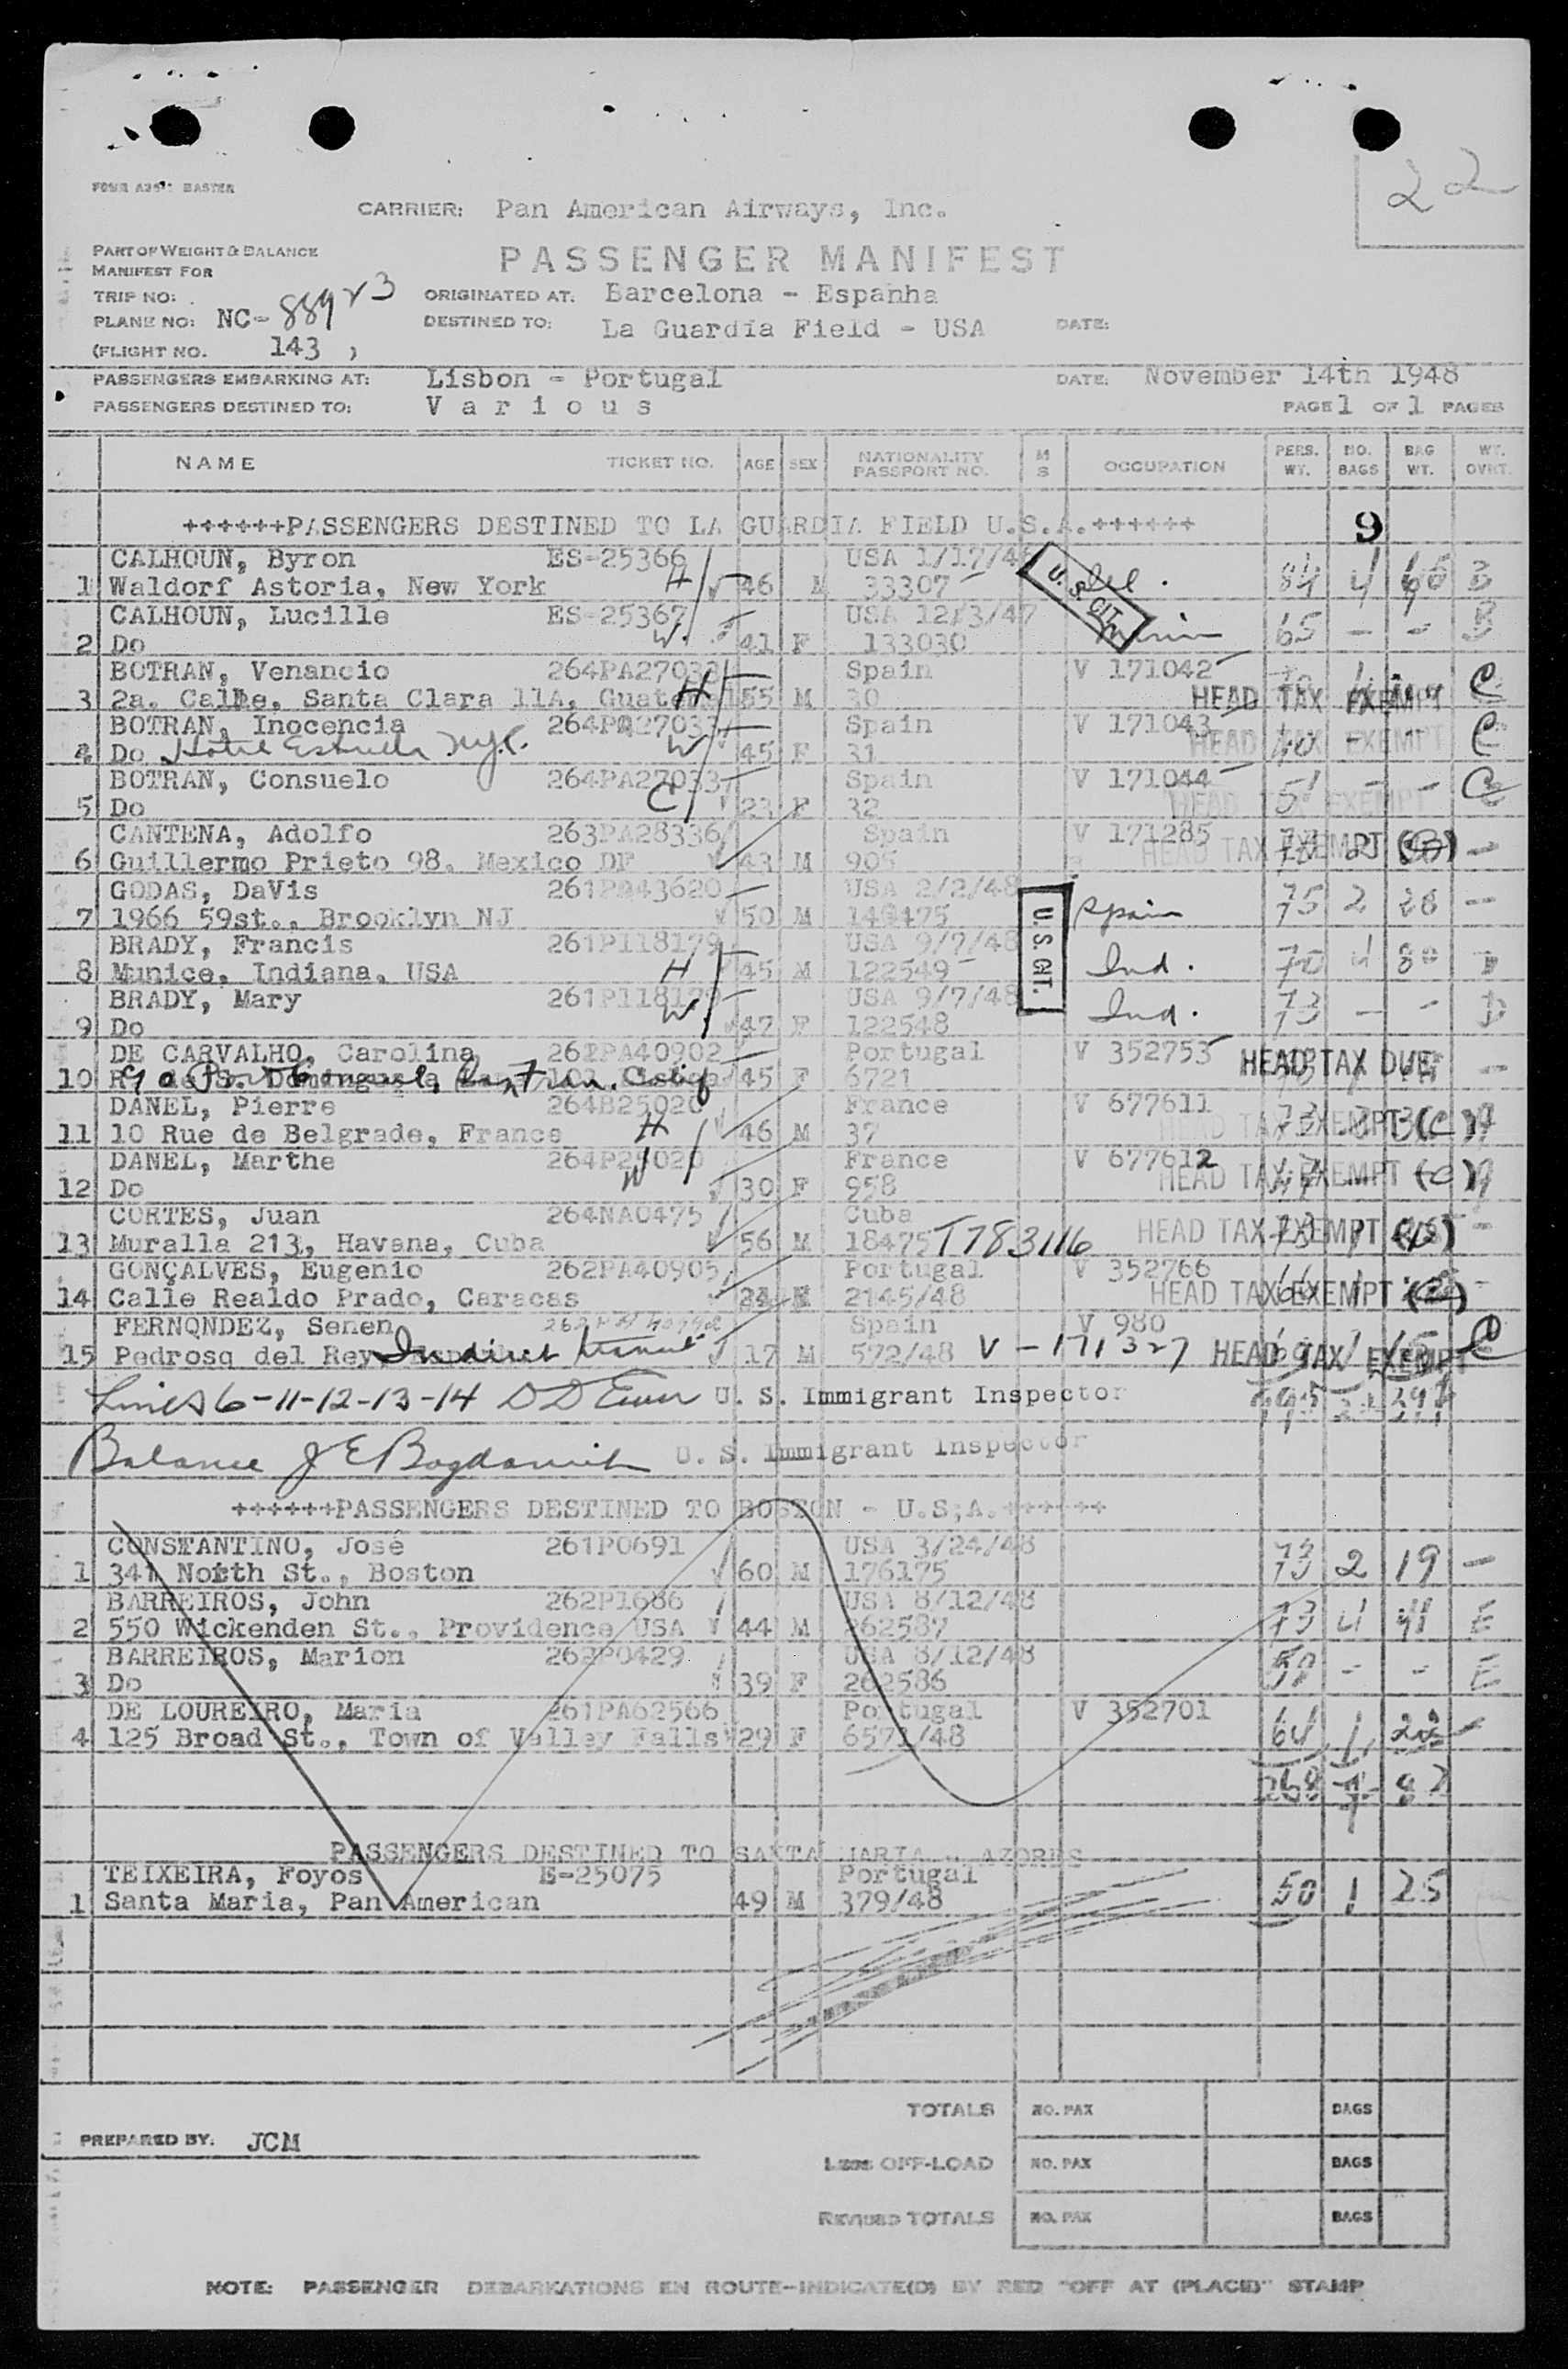 22
FORM A251 MASTER
CARRIER: Pan American Airways, Inc.
PART OF WEIGHT & BALANCE
MANIFEST FOR
PASSENGER MANIFEST
TRIP NO:
ORIGINATED AT: Barcelona - Espanha
PLANE NO: NC-88923
DESTINED TO: La Guardia Field - USA DATE:
(FLIGHT NO. 143 )
PASSENGERS EMBARKING AT: Lisbon - Portugal DATE: November 14th 1948
PASSENGERS DESTINED TO: V a r i o u s PAGE 1 OF 1 PAGES
NAME TICKET NO. AGE SEX NATIONALITY PASSPORT NO. M S OCCUPATION PERS. WT. NO. BAGS BAG WT. WT. OVRT.
++++++PASSENGERS DESTINED TO LA GUARDIA FIELD U.S.A.++++++ 9
CALHOUN, Byron ES-25366 USA 1/17/46
1 Waldorf Astoria, New York H 46 M 33307 U.S. CIT. 84 4 66 B
CALHOUN, Lucille ES-25367 USA 12/3/47
2 Do W. 41 F 133030 65 - - B
BOTRAN, Venancio 264PA27033 Spain V 171042
3 2a. Calle, Santa Clara 11A, H 55 M 30 HEAD TAX EXEMPT C
BOTRAN, Inocencia 264PA27033 Spain V 171043
4 Do W 45 F 31 HEAD TAX EXEMPT C
BOTRAN, Consuelo 264PA27033 Spain V 171044
5 Do C 23 F 32 HEAD TAX EXEMPT 51 - - C
CANTENA, Adolfo 263PA28336 Spain V 171285
6 Guillermo Prieto 98. Mexico DF 43 M 905 HEAD TAX EXEMPT -
GODAS, DaVis 261PA43620 USA 2/2/48
7 1966 59st., Brooklyn NJ 50 M 149475 U.S. CIT. Spain 75 2 28 -
BRADY, Francis 261P118179 USA 9/7/48
8 Munice, Indiana, USA H 45 M 122549 Ind. 70 4 80 D
BRADY, Mary 261P118179 USA 9/7/48
9 Do W. 47 F 122548 Ind. 73 - - D
DE CARVALHO, Carolina 262PA40902 Portugal V 352753 HEAD TAX DUE
10 45 F 6721 -
DANEL, Pierre 264B25020 France V 677611
11 10 Rue de Belgrade, France H 46 M 37 HEAD TAX EXEMPT (C) A
DANEL, Marthe 264P25020 France V 677612
12 Do W 30 F 958 HEAD TAX EXEMPT (C) A
CORTES, Juan 264NA0475 Cuba
13 Muralla 213, Havana, Cuba 56 M 18475 T783116 HEAD TAX EXEMPT -
GONÇALVES, Eugenio 262PA40905 Portugal V 352766
14 Calle Realdo Prado, Caracas 24 M 2145/48 HEAD TAX EXEMPT
FERNQNDEZ, Senen Spain V 980
15 Pedrosq del Rey Indirect transit 17 M 572/48 V - 171327 HEAD TAX EXEMPT C
Lines 6-11-12-13-14 U. S. Immigrant Inspector
Balance U. S. Immigrant Inspector
++++++PASSENGERS DESTINED TO BOSTON - U.S;A.++++++
CONSTANTINO, José 261P0691 USA 3/24/48
1 341 North St., Boston 60 M 176175 73 2 19 -
BARREIROS, John 262P1686 USA 8/12/48
2 550 Wickenden St., Providence USA 44 M 262587 73 4 41 E
BARREIROS, Marion 262P0429 USA 8/12/48
3 Do 39 F 262586 58 - - E
DE LOUREIRO, Maria 261PA62566 Portugal V 352701
4 125 Broad St., Town of Valley Falls 29 F 6571/48 64 1 22 -
268 7 82
PASSENGERS DESTINED TO SANTA MARIA - AZORES
TEIXEIRA, Foyos E-25075 Portugal
1 Santa Maria, Pan American 49 M 379/48 50 1 25
TOTALS NO. PAX BAGS
PREPARED BY: JCM
LESS OFF-LOAD NO. PAX BAGS
REVISED TOTALS NO. PAX BAGS
NOTE: PASSENGER DEBARKATIONS EN ROUTE-INDICATE(D) BY RED "OFF AT (PLACE)" STAMP